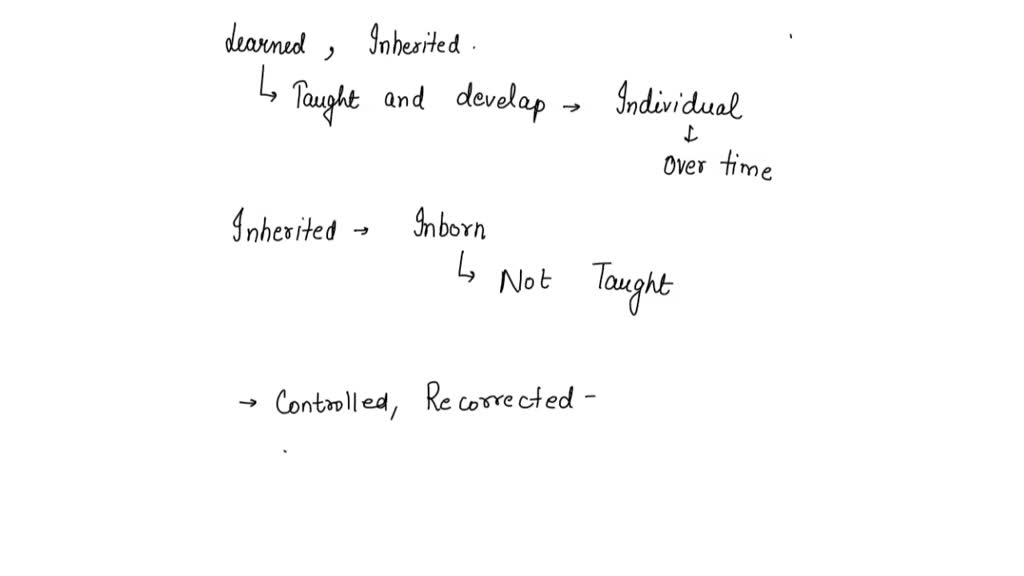 learned, Inherited.
↳ Taught and develap → Individual
↓
over time
Inherited → Inborn
↳ Not Taught
→ Controlled, Recorrected -